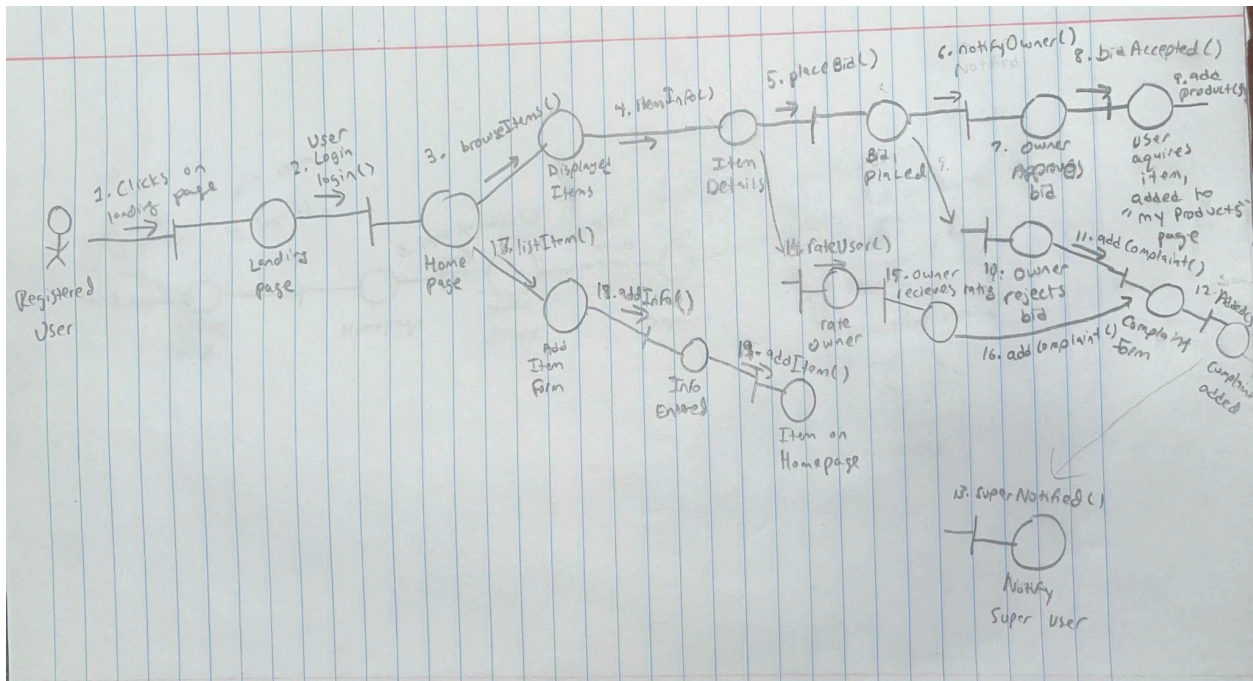 Registered
User
1. Clicks on
landing page
Landing
page
2. User
Login
login()
Home
page
3. browseItems()
Displayed
Items
4. itemInfo()
Item
Details
5. placeBid()
Bid
placed
6. notifyOwner()
Notified
7. Owner
Approves
bid
8. bidAccepted()
9. add
product(s)
User
aquires
item,
added to
"my products"
page
9.
10. Owner
rejects
bid
11. addComplaint()
Complaint
Form
12. Added()
Complaint
added
13. SuperNotified()
Notify
Super User
14. rateUser()
rate
Owner
15. Owner
recieves rating
16. addComplaint()
17. listItem()
Add
Item
Form
18. addInfo()
Info
Entered
19. addItem()
Item on
Homepage